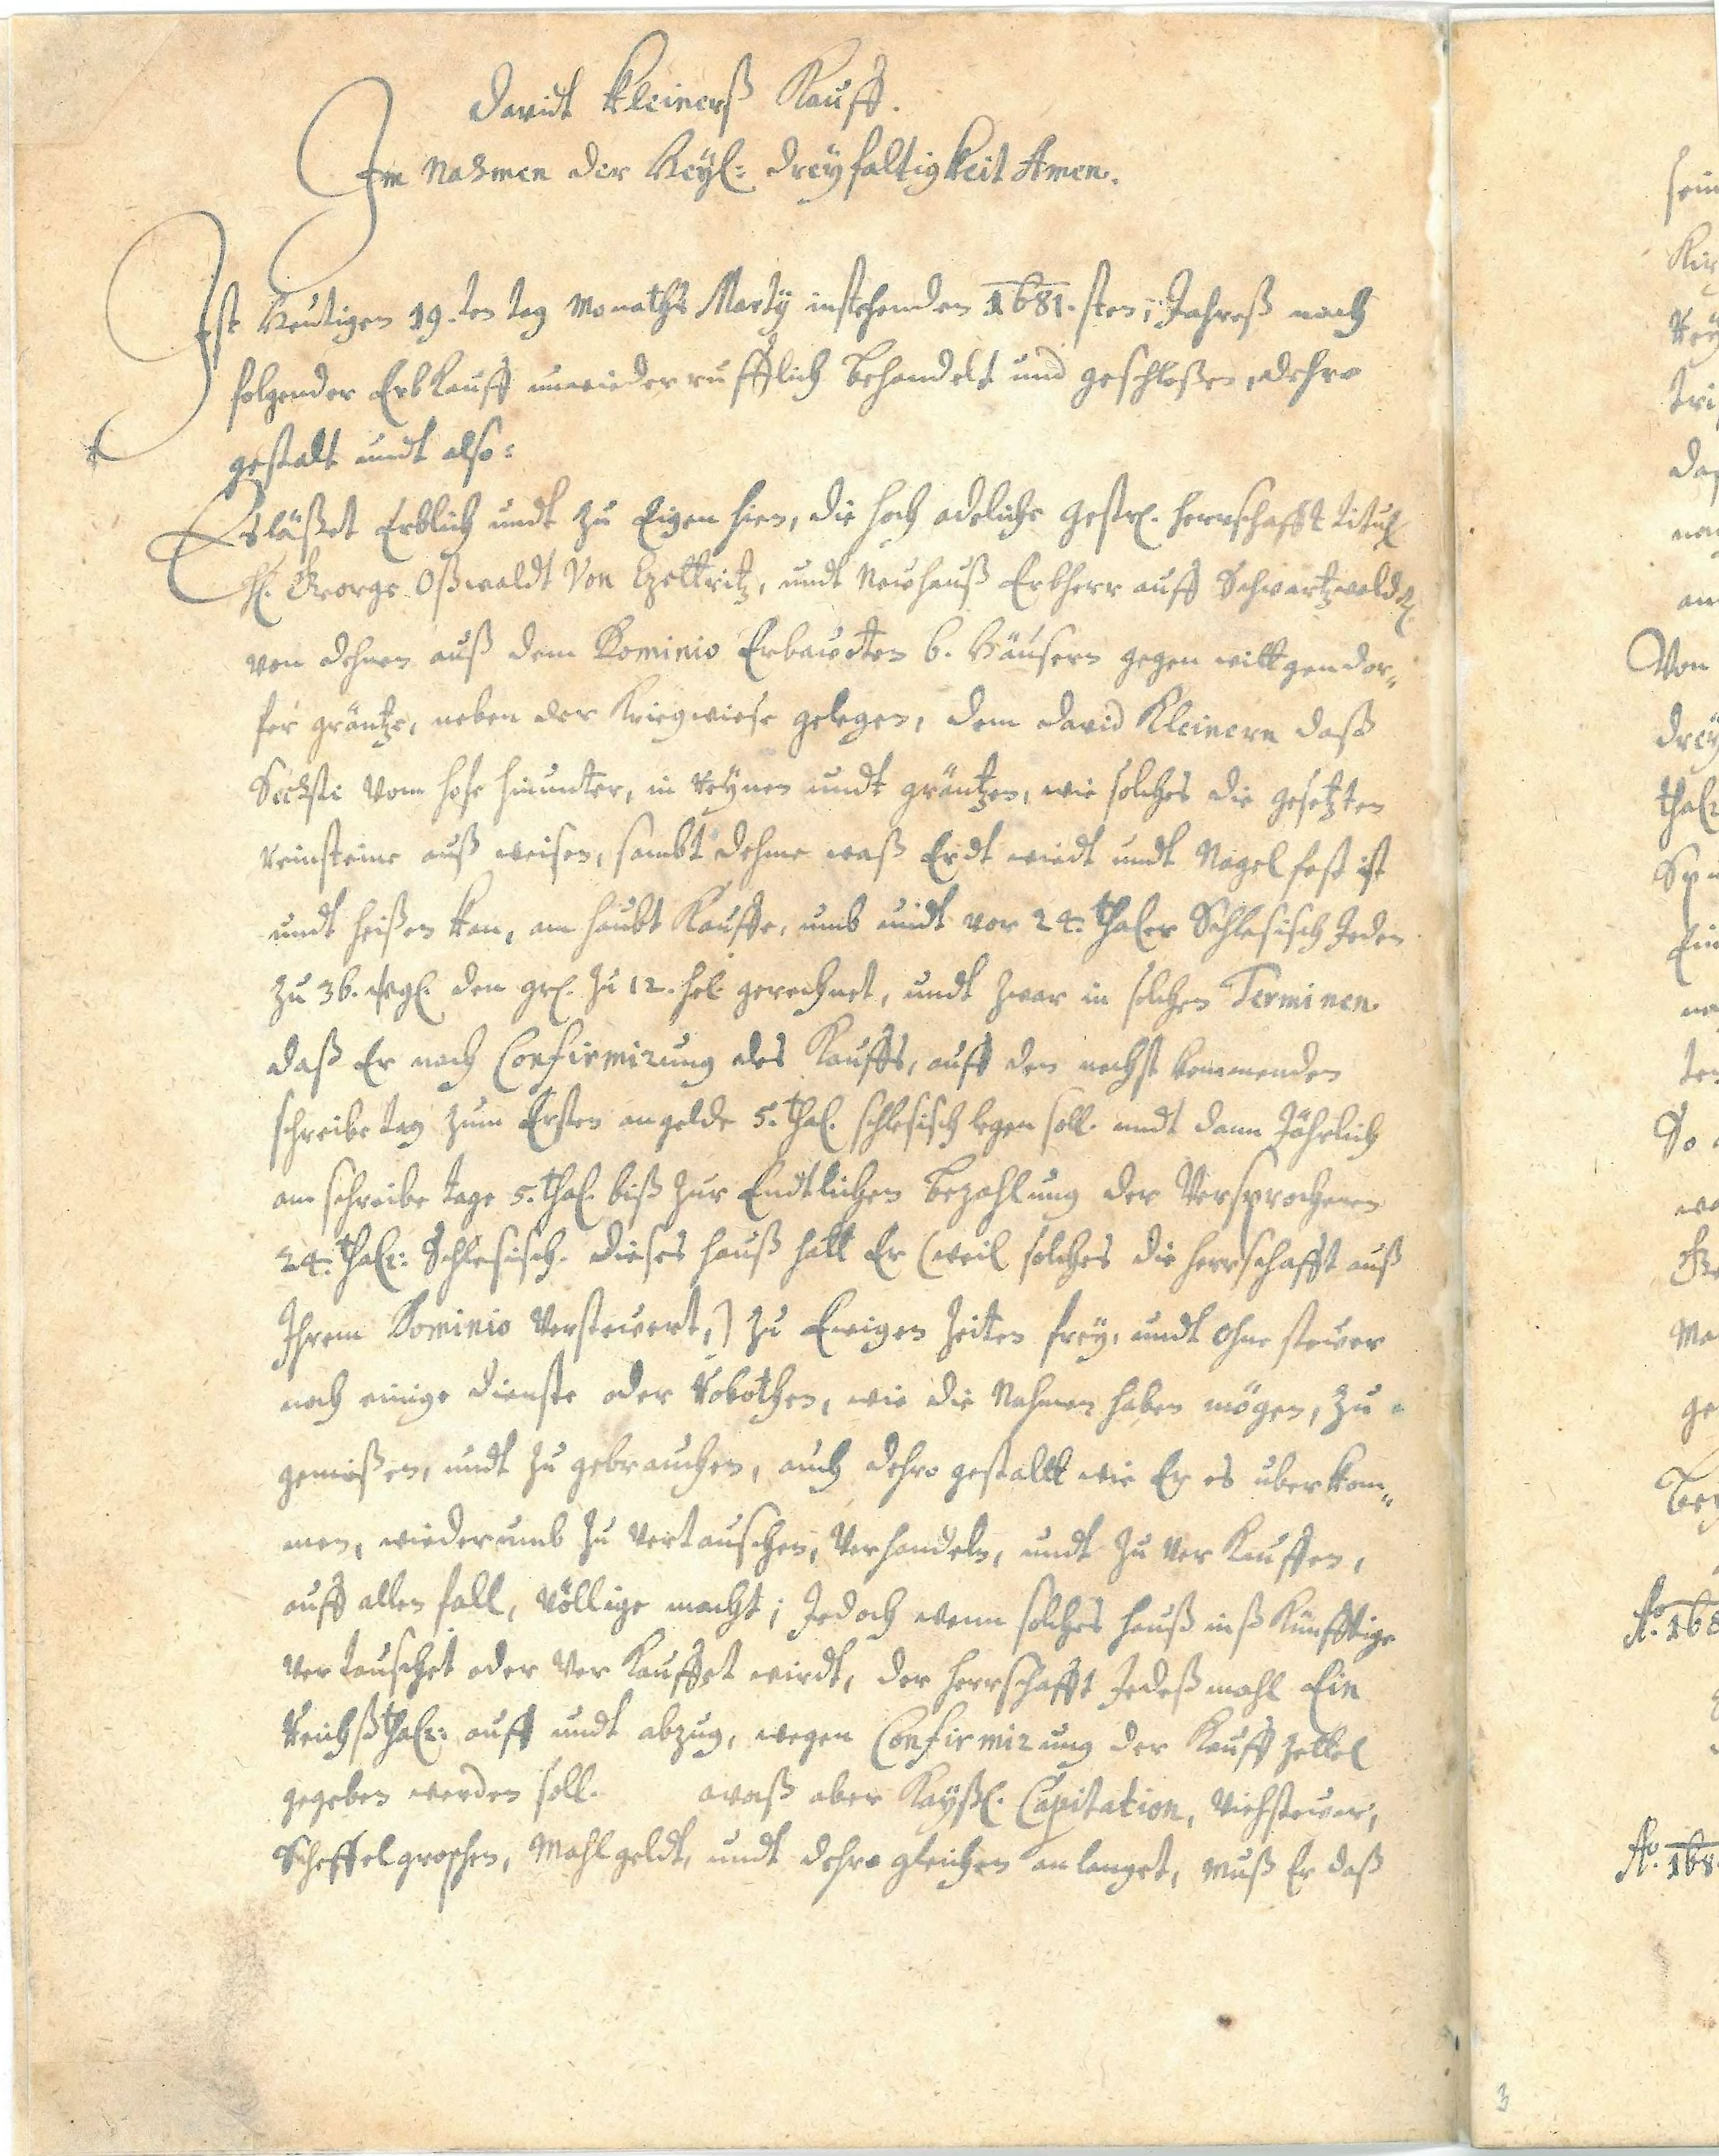 Davidt Kleinerß Kauff.
Im Nahmen der Heyl: Dreyfaltigkeit Amen.
Ist Heutigen 19.ten tag Monaths Marty instehenden 1681.sten Jahreß nach
folgender Erbkauff unwiederrufflich behandelt und geschloßen, dehro
gestalt undt also:
Es läßet Erblich undt zu Eigen hien, die hoch adeliche gestr. herrschafft titul
H. George Oßwaldt Von Czettritz, undt Neuhauß Erbherr auff Schwartzwalde
von dehnen auß dem Dominio Erbaudten 6. Häusern gegen wittgendor„
fer gräntze, neben der Kriegwiese gelegen, dem David Kleinern daß
Sechste Vom hofe hinunter, in Reynen undt gräntzen, wie solches die gesetzten
Reinsteine auß weisen, sambt dehme waß Erdt wiedt undt Nagel fest ist
undt heißen kan, am haubt Kauffe, umb undt vor 24. thaler Schlesisch Jeden
zu 36. den gr. zu 12. hel. gerechnet, undt zwar in solchen Terminen
daß Er nach Confirmirung des Kauffs, auff den nechst kommenden
schreibe tag zum Ersten angelde 5. thal. schlesisch legen soll. undt dann Jährlich
am schreibe tage 5. thal. biß zur Endtlichen bezahlung der Versprochenen
24. thalr: Schlesisch. dieses hauß hatt Er (weil solches die herrschafft auß
Ihrem Dominio Versteuert,) zu Ewigen Zeiten frey, undt ohne steuer
noch einige dienste oder Robothen, wie die Nahmen haben mögen, zu
genießen, undt zu gebrauchen, auch dehro gestaltt wie Er es uberkom„
men, wiederumb zu vertauschen, Verhandeln, undt zu ver Kauffen,
auff allen fall, völlige macht; Jedoch wenn solches hauß inß Künfftige
vertauschet oder ver Kauffet wirdt, der herrschafft Jedeßmahl Ein
Reichßthalr: auff undt abzug, wegen Confirmirung der Kauff zettel
gegeben werden soll. waß aber Kayßl. Capitation, Viehsteuer,
Scheffelgroschen, Mahlgeldt, undt dehro gleichen anlanget, muß Er daß
Von
So
Aº. 168
Aº. 168
3